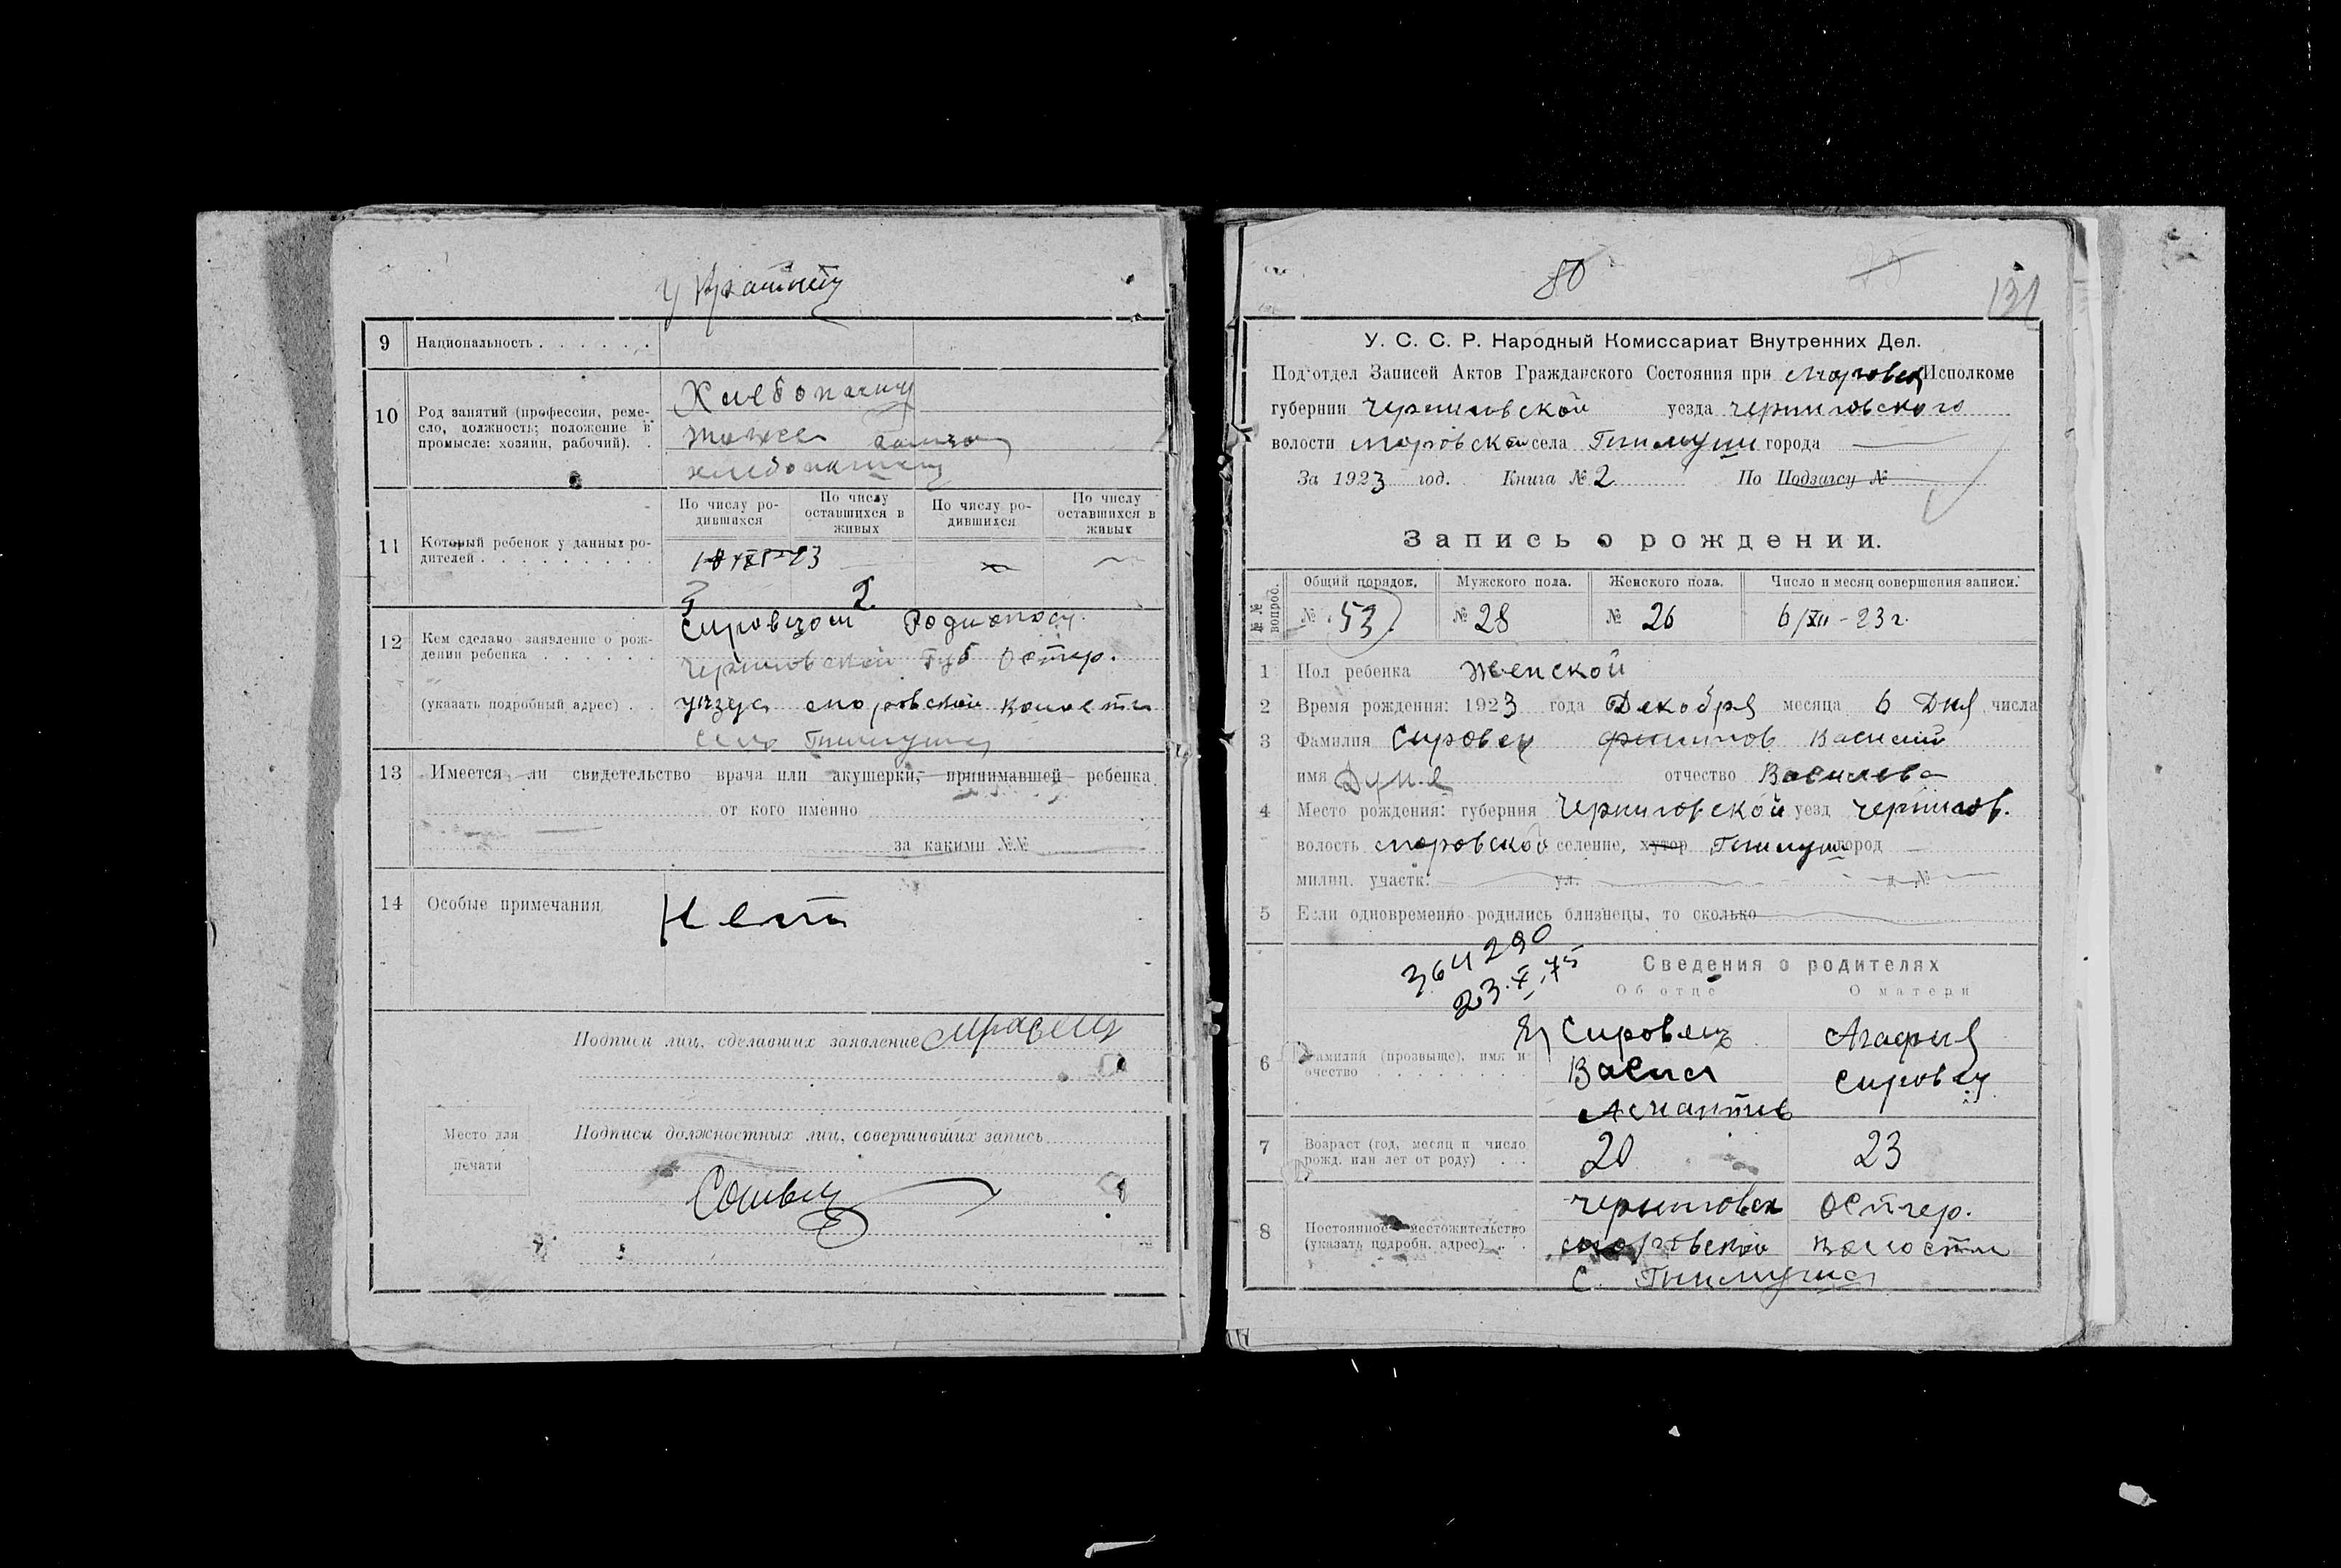 9 Национальность . . . . . .
10 Род занятий (профессия, реме-
сло, должность; положение в
промысле: хозяин, рабочий). .
11 Который ребенок у данных ро-
дителей . . . . . . . . .
По числу ро-
дившихся
По числу
оставшихся в
живых
По числу ро-
дившихся
По числу
оставшихся в
живых
2
12 Кем сделано заявление о рож-
дении ребенка . . . . . .
Черниговской Губ Остер.
(указать подробный адрес) . .
моровской волости
село
13 Имеется ли свидетельство врача или акушерки, принимавшей ребенка
от кого именно
за какими №№
14 Особые примечания
Нет
Подписи лиц, сделавших заявление
Место для
печати
Подписи должностных лиц, совершивших запись
80
131
У. С. С. Р. Народный Комиссариат Внутренних Дел.
Под'отдел Записей Актов Гражданского Состояния при Моровск Исполкоме
губернии Черниговской уезда черниговского
волости моровской села города
За 1923 год. Книга № 2 По Подзагсу №
Запись о рождении.
№№ вопрос.
Общий порядок. Мужского пола. Женского пола. Число и месяц совершения записи.
№ 53 № 28 № 26 6/XII-23 г.
1 Пол ребенка Женской
2 Время рождения: 1923 года Декабря месяца 6 Дня числа
3 Фамилия Сировец
имя отчество Василева
4 Место рождения: губерния Черниговской уезд чернигов.
волость моровской селение, хутор город
милиц. участк. ул. д №
5 Если одновременно родились близнецы, то сколько
364290
23.X.75
Сведения о родителях
Об отце О матери
6 Фамилия (прозвище), имя и
отчество . . . . . . . .
Сировец
Агафия
Сировец
7 Возраст (год, месяц и число
рожд. или лет от роду) . .
20 23
8 Постоянное местожительство
(указать подробн. адрес) . .
Черниговск Остер.
моровской волости
с.